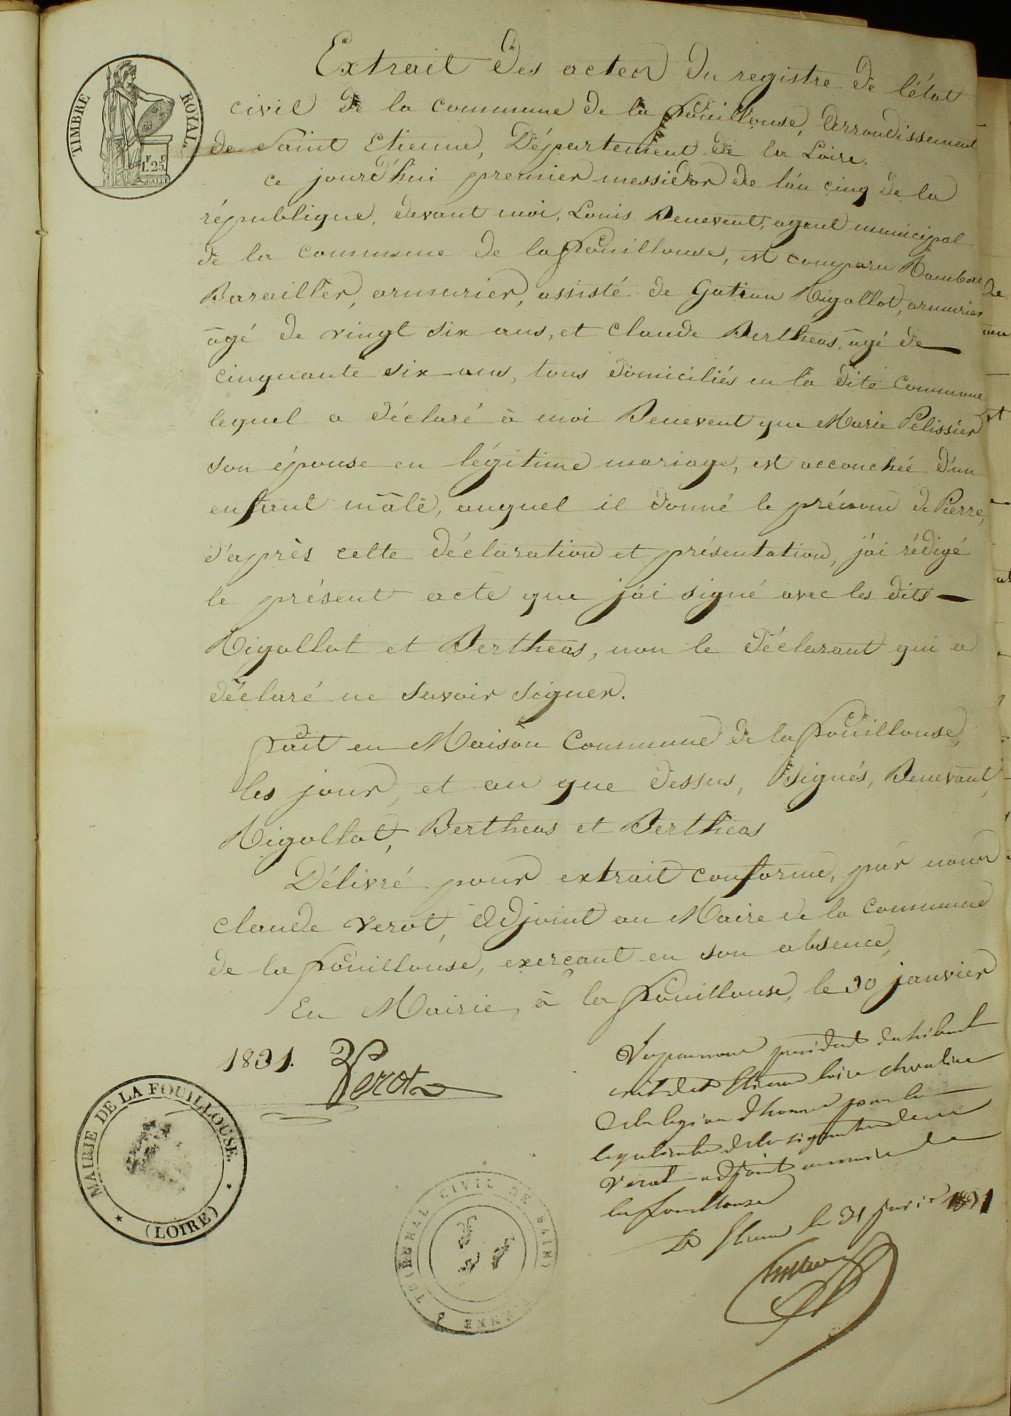 TIMBRE ROYAL
1F 25
Extrait des actes du registre de l'état
civil de la commune de la fouillouse, Arrondissement
de Saint Etienne, Département de la Loire.
ce jourd'hui premier messidor de l'an cinq de la
république, devant moi, Louis Benevent, agent municipal
de la commune de la fouillouse, est comparu Rambert
Barailler, armurier, assisté de Gatian Rigollot, armurier
âgé de vingt six ans, et claude Bertheas, âgé de
cinquante six ans, tous domiciliés en la dite commune
lequel a déclaré à moi Benevent que Marie Pélissier
son épouse en légitime mariage, est accouchée d'un
enfant mâle, auquel il donné le prénom de Pierre,
d'après cette déclaration et présentation, j'ai rédigé
le présent acte que j'ai signé avec les dits
Rigollot et Bertheas, non le déclarant qui a
déclaré ne savoir signer.
fait en Maison Commune de la fouillouse,
les jour, et an que dessus, signés, Benevant,
Rigollot, Bertheas et Bertheas
Délivré pour extrait conforme, par nous
claude Verot, adjoint au Maire de la commune
de la fouillouse, exerçant en son absence,
En Mairie, à la fouillouse, le 30 janvier
1831. Verot
Vu par nous président du tribunal
civil de St Etienne Loire chevalier
de la légion d'honneur pour la
légalisation de la signature de
Verot adjoint au maire de
la fouillouse
St Etienne le 31 janvier 1831
MAIRIE DE LA FOUILLOUSE.
(LOIRE)
TRIBUNAL CIVIL DE SAINT